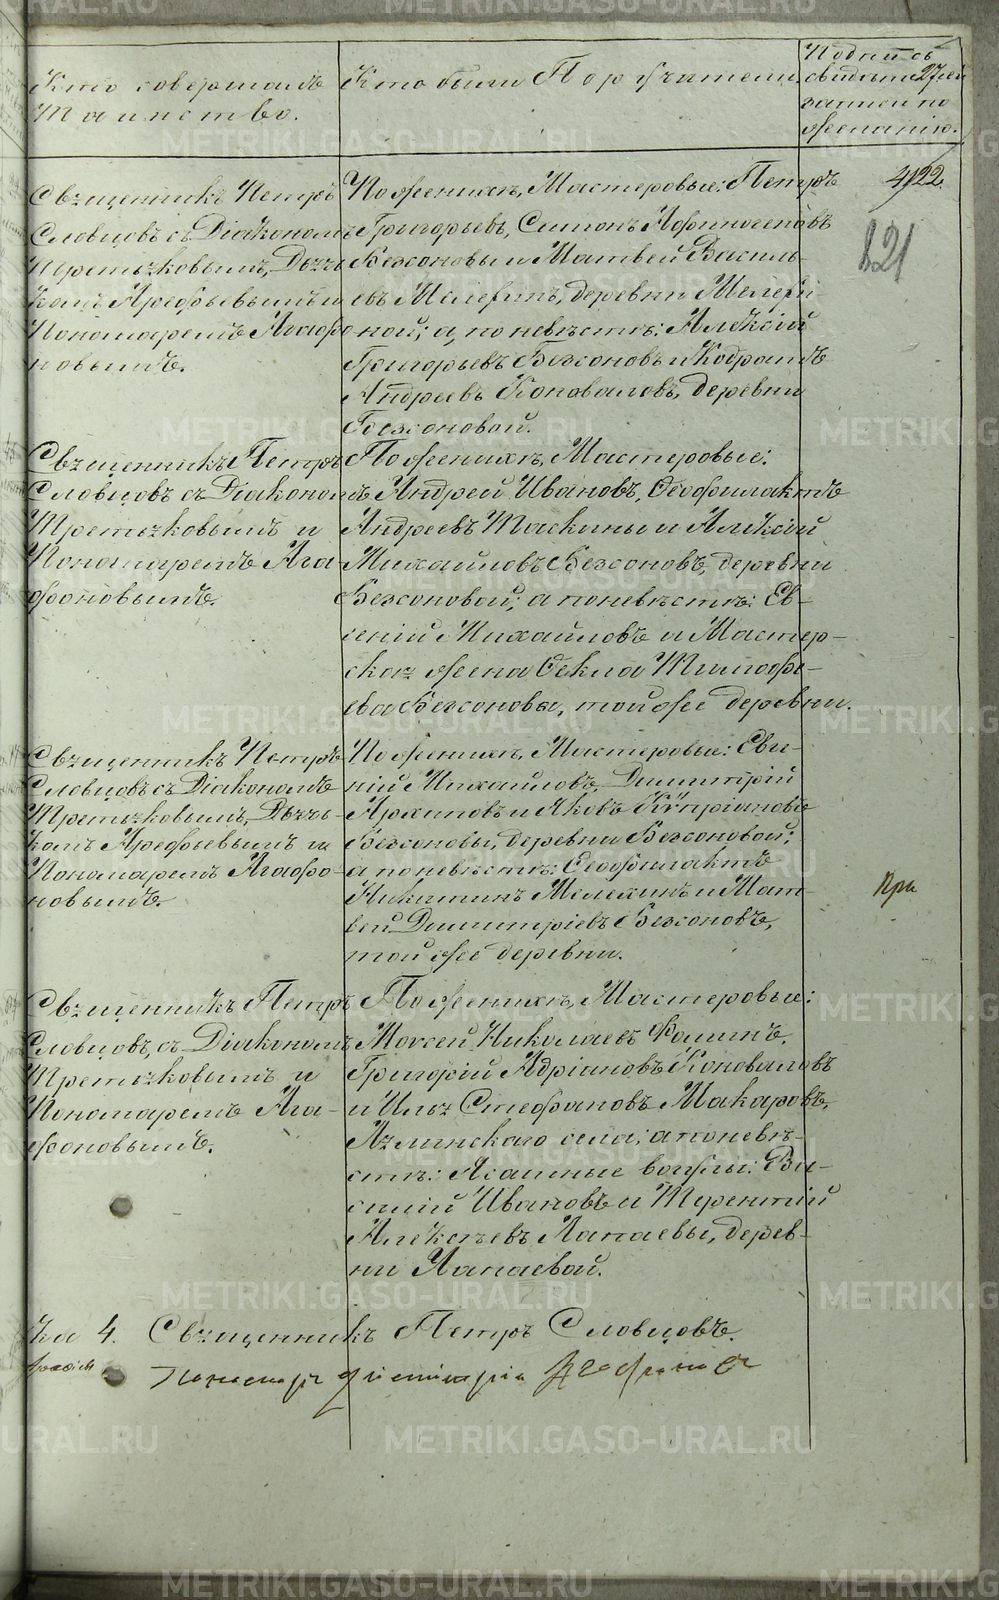 Кто совершалъ
Таинство.
Кто были Поручители
Подпись
свидѣтелей
записи по
желанію.
27
422
121
Священникъ Петръ
Словцовъ съ Діакономъ
Третьяковымъ, Дьяч-
комъ Арефьевымъ и
Пономаремъ Агафо-
новымъ.
По женихѣ, Мастеровые: Петръ
Григорьевъ, Симонъ Афиногеновъ
Безсоновы и Матвей Василь-
евъ Мелехинъ, деревни Мелехи-
ной; а, по невѣстѣ: Алексій
Григорьевъ Безсоновъ и Кодратъ
Андреевъ Коноваловъ, деревни
Безсоновой.
Священникъ Петръ
Словцовъ съ Діакономъ
Третьяковымъ и
Пономаремъ Ага-
фоновымъ.
По женихѣ, Мастеровые:
Андрей Ивановъ, Ѳеофилактъ
Андреевъ Таскины и Алексій
Михайловъ Безсоновъ, деревни
Безсоновой; а по невѣстѣ: Ев-
сеній Михайловъ и Мастер-
ская жена Ѳекла Тимофе-
ева Безсоновы, той же деревни.
Священникъ Петръ
Словцовъ съ Діакономъ
Третьяковымъ, Дьяч-
комъ Арефьевымъ и
Пономаремъ Агафо-
новымъ.
По женихѣ, Мастеровые: Евсе-
ній Михайловъ, Димитрій
Архиповъ и Яковъ Кипріановъ
Безсоновы, деревни Безсоновой;
а по невѣстѣ: Ѳеофилактъ
Никитинъ Мелехинъ и Мат-
вей Димитріевъ Безсоновъ,
той же деревни.
При
Священникъ Петръ
Словцовъ, съ Діакономъ
Третьяковымъ и
Пономаремъ Ага-
фоновымъ.
По женихѣ, Мастеровые:
Моѵсей Николаевъ Фоминъ,
Григорій Адріановъ Коноваловъ
и Илья Стефановъ Макаровъ,
Аятскаго села; а по невѣ-
стѣ: Ясашные вогулы: Ва-
силій Ивановъ и Терентій
Алексѣевъ Лапаевы, дерев-
ни Лапаевой.
4. Священникъ Петръ Словцовъ.
Пономарь Димитрій Агафонов